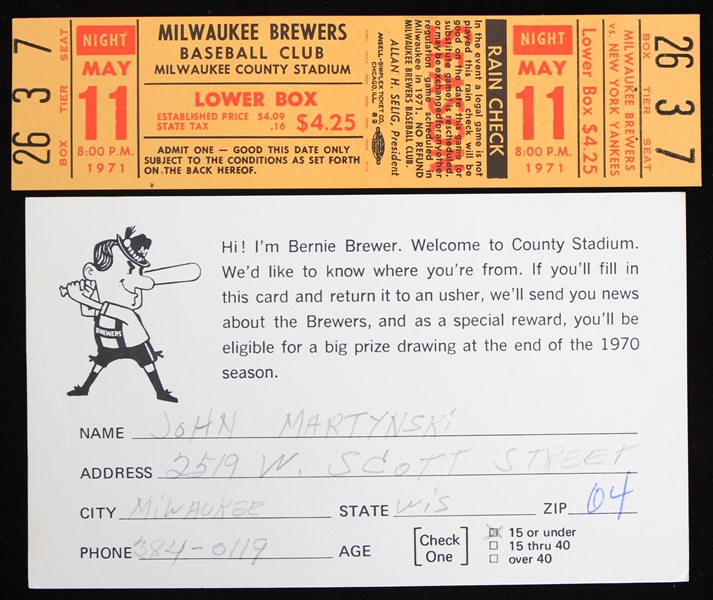 26 3 7
BOX TIER SEAT
NIGHT
MAY
11
8:00 P.M.
1971
MILWAUKEE BREWERS
BASEBALL CLUB
MILWAUKEE COUNTY STADIUM
LOWER BOX
ESTABLISHED PRICE $4.09
STATE TAX .16
$4.25
ADMIT ONE — GOOD THIS DATE ONLY
SUBJECT TO THE CONDITIONS AS SET FORTH
ON THE BACK HEREOF.
ANSELL-SIMPLEX TICKET CO.
CHICAGO, ILL. 82
ALLAN H. SELIG, President
MILWAUKEE BREWERS BASEBALL CLUB.
Milwaukee in 1971. NO REFUND
regulation game scheduled in
or may be exchanged for any other
substitute game) is rescheduled,
good on the date this game (or
played this rain check will be
In the event a legal game is not
RAIN CHECK
NIGHT
MAY
11
8:00 P.M.
1971
Lower Box $4.25
vs. NEW YORK YANKEES
MILWAUKEE BREWERS
BOX TIER SEAT
26 3 7
BREWERS
Hi! I'm Bernie Brewer. Welcome to County Stadium.
We'd like to know where you're from. If you'll fill in
this card and return it to an usher, we'll send you news
about the Brewers, and as a special reward, you'll be
eligible for a big prize drawing at the end of the 1970
season.
NAME JOHN MARTYNSKI
ADDRESS 2519 W. SCOTT STREET
CITY MILWAUKEE STATE WIS ZIP 04
PHONE 384-0119 AGE [Check One] 15 or under
15 thru 40
over 40